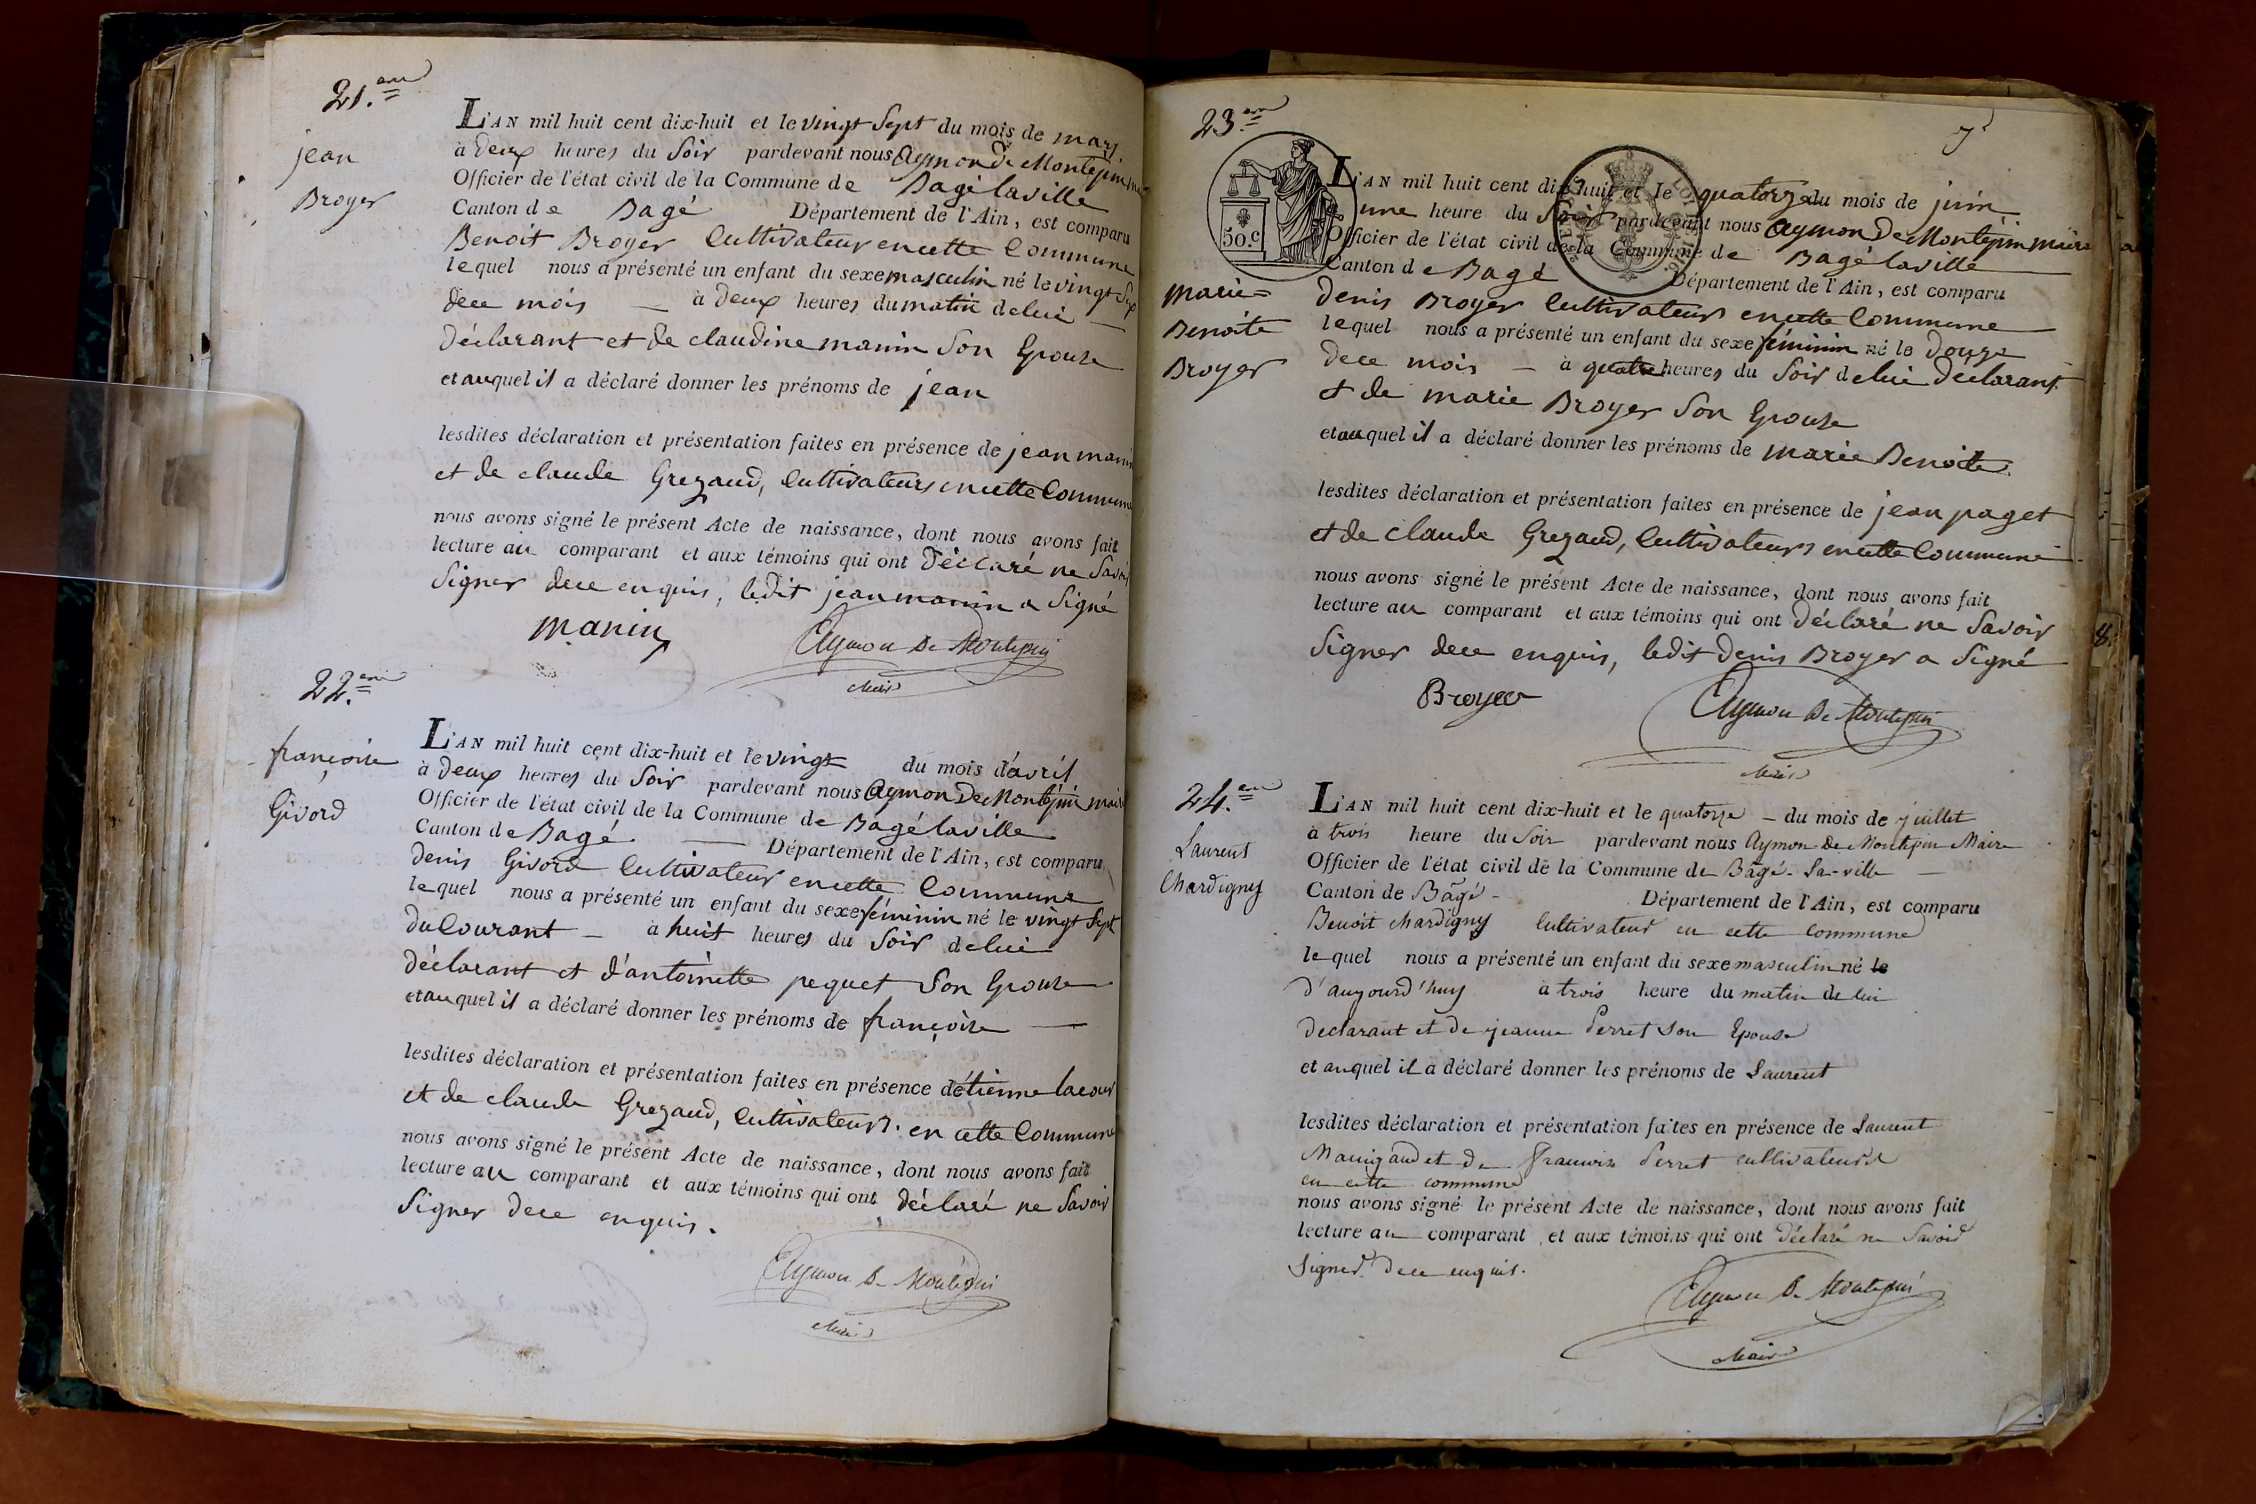 21.eme
jean
Broyer
L'AN mil huit cent dix-huit et le vingt sept du mois de mars
à deux heures du soir pardevant nous Aymon De Montépin
Officier de l'état civil de la Commune de Bagé laville
Canton de Bagé Département de l'Ain, est comparu
Benoit Broyer Cultivateur en cette Commune
lequel nous a présenté un enfant du sexe masculin né le vingt Sept
de ce mois — à deux heures du matin de lui —
déclarant et de claudine manin Son Epouse
et auquel il a déclaré donner les prénoms de jean
lesdites déclaration et présentation faites en présence de jean manin
et de claude Grezaud, Cultivateurs en cette Commune
nous avons signé le présent Acte de naissance, dont nous avons fait
lecture au comparant et aux témoins qui ont Déclaré ne Savoir
Signer de ce enquis, ledit jean manin a Signé
manin Aymon De Montepin
Maire
22.eme
françoise
Givord
L'AN mil huit cent dix-huit et le vingt du mois d'avril
à deux heures du Soir pardevant nous Aymon De Montépin maire
Officier de l'état civil de la Commune de Bagé laville
Canton de Bagé — Département de l'Ain, est comparu
denis Givord Cultivateur en cette Commune
lequel nous a présenté un enfant du sexe féminin né le vingt Sept
du Courant — à huit heures du Soir de lui
déclarant et d'antoinette pequet Son Epouse
et auquel il a déclaré donner les prénoms de françoise —
lesdites déclaration et présentation faites en présence d'étienne lacour
et de claude Grezaud, Cultivateurs en cette Commune
nous avons signé le présent Acte de naissance, dont nous avons fait
lecture au comparant et aux témoins qui ont déclaré ne Savoir
Signer de ce enquis.
Aymon De Montepin
Maire
23.eme
50.c
marie=
Benoite
Broyer
L'AN mil huit cent dix-huit et le quatorze du mois de juin
une heure du Soir pardevant nous Aymon De Montépin maire
Officier de l'état civil de la Commune de Bagé laville
Canton de Bagé Département de l'Ain, est comparu
denis Broyer Cultivateur en cette Commune
lequel nous a présenté un enfant du sexe féminin né le douze
de ce mois — à quatre heures du Soir de lui déclarant
et de marie Broyer Son Epouse
et auquel il a déclaré donner les prénoms de marie Benoite.
lesdites déclaration et présentation faites en présence de jean paget
et de claude Grezaud, Cultivateurs en cette Commune
nous avons signé le présent Acte de naissance, dont nous avons fait
lecture au comparant et aux témoins qui ont déclaré ne Savoir
Signer de ce enquis, ledit denis Broyer a Signé
Broyer Aymon De Montepin
Maire
8.
24.eme
Laurent
Chardigny
L'AN mil huit cent dix-huit et le quatorze — du mois de juillet
à trois heure du Soir pardevant nous Aymon de Montepin Maire
Officier de l'état civil de la Commune de Bagé-La-ville —
Canton de Bagé - Département de l'Ain, est comparu
Benoit chardigny Cultivateur en cette commune
lequel nous a présenté un enfant du sexe masculin né le
d'aujourd'huy à trois heure du matin de lui
declarant et de jeanne Perret son Epouse
et auquel il a déclaré donner les prénoms de Laurent
lesdites déclaration et présentation faites en présence de Laurent
Manigand et de François Perret cultivateurs
en cette commune
nous avons signé le présent Acte de naissance, dont nous avons fait
lecture au comparant et aux témoins qui ont déclaré ne Savoir
signer de ce enquis.
Aymon De Montepin
Maire